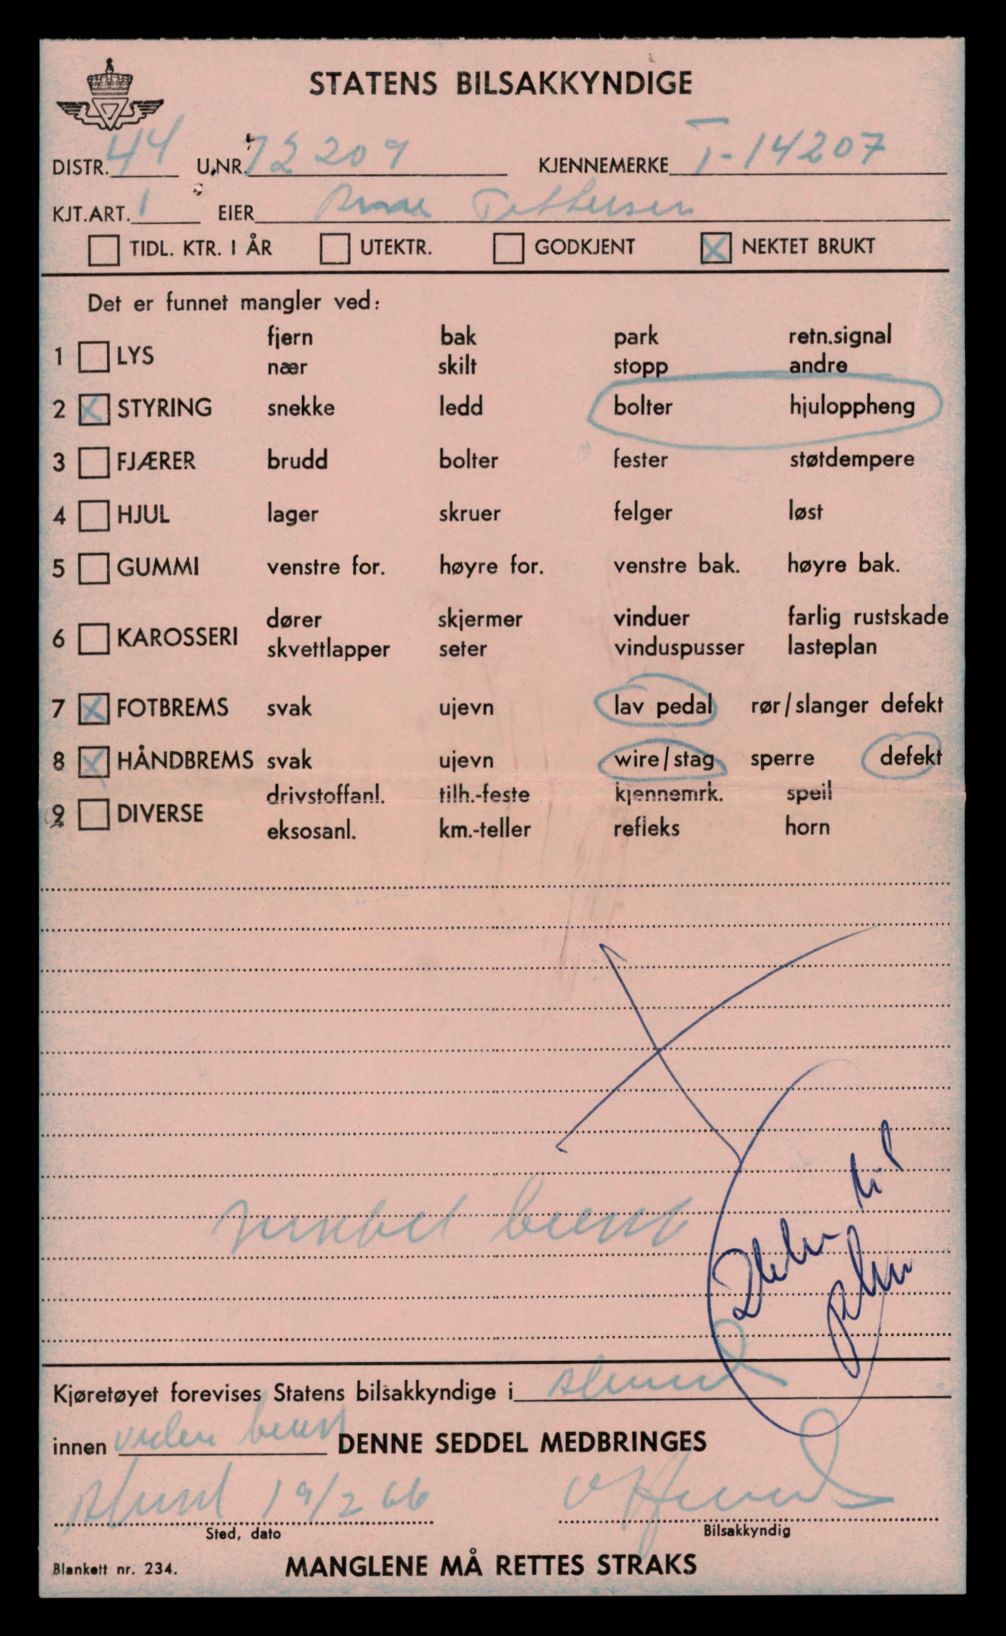 STATENS BILSAKKYNDIGE
DISTR. 44 U.NR. 72209 KJENNEMERKE T-14207
KJT.ART. 1 EIER Pettersen
TIDL. KTR. I ÅR UTEKTR. GODKJENT X NEKTET BRUKT
Det er funnet mangler ved:
fjern bak park retn.signal
1 LYS
nær skilt stopp andre
2 X STYRING snekke ledd bolter hjuloppheng
3 FJÆRER brudd bolter fester støtdempere
4 HJUL lager skruer felger løst
5 GUMMI venstre for. høyre for. venstre bak. høyre bak.
dører skjermer vinduer farlig rustskade
6 KAROSSERI
skvettlapper seter vinduspusser lasteplan
7 X FOTBREMS svak ujevn lav pedal rør/slanger defekt
8 X HÅNDBREMS svak ujevn wire/stag sperre defekt
drivstoffanl. tilh.-feste kjennemrk. speil
9 DIVERSE
eksosanl. km.-teller refleks horn
nektet brukt
Kjøretøyet forevises Statens bilsakkyndige i Ålesund
innen DENNE SEDDEL MEDBRINGES
Ålesund 19/2 66
Sted, dato Bilsakkyndig
Blankett nr. 234. MANGLENE MÅ RETTES STRAKS